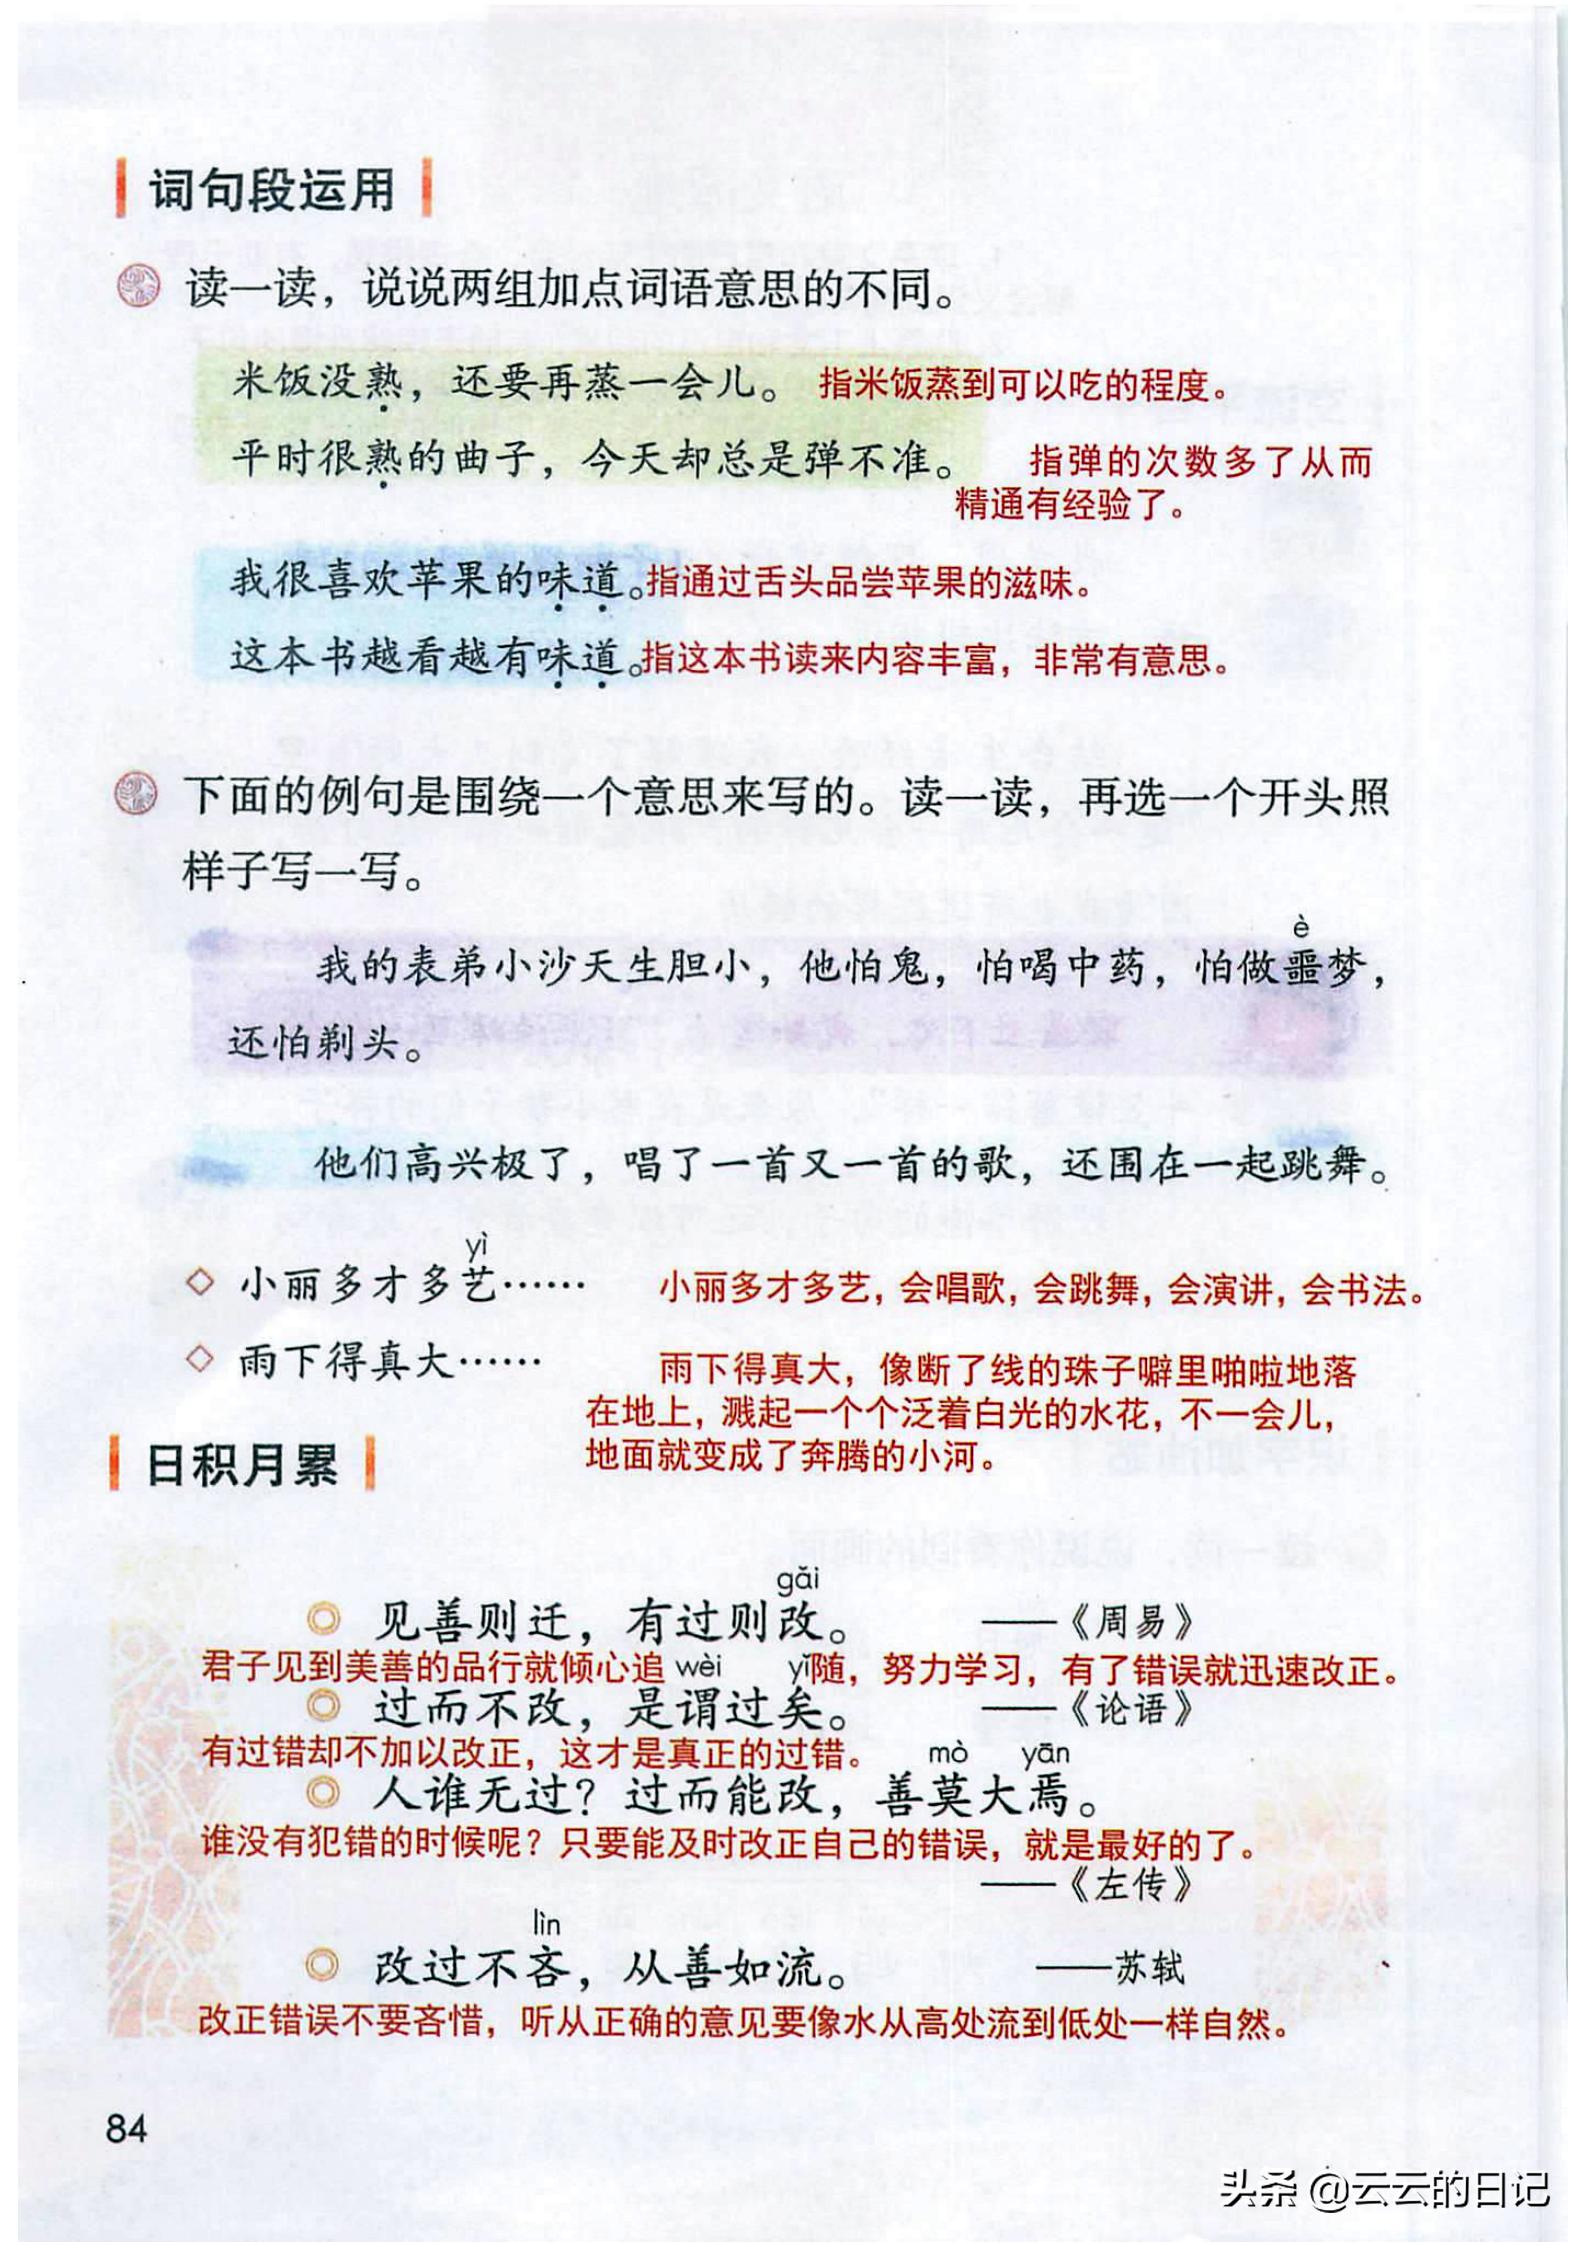 词句段运用
读一读，说说两组加点词语意思的不同。
米饭没熟，还要再蒸一会儿。 指米饭蒸到可以吃的程度。
平时很熟的曲子，今天却总是弹不准。 指弹的次数多了从而
精通有经验了。
我很喜欢苹果的味道。指通过舌头品尝苹果的滋味。
这本书越看越有味道。指这本书读来内容丰富，非常有意思。
下面的例句是围绕一个意思来写的。读一读，再选一个开头照
样子写一写。
è
我的表弟小沙天生胆小，他怕鬼，怕喝中药，怕做噩梦，
还怕剃头。
他们高兴极了，唱了一首又一首的歌，还围在一起跳舞。
yì
◇ 小丽多才多艺…… 小丽多才多艺，会唱歌，会跳舞，会演讲，会书法。
◇ 雨下得真大…… 雨下得真大，像断了线的珠子噼里啪啦地落
在地上，溅起一个个泛着白光的水花，不一会儿，
地面就变成了奔腾的小河。
日积月累
gǎi
◎ 见善则迁，有过则改。 ——《周易》
君子见到美善的品行就倾心追 wèi yǐ随，努力学习，有了错误就迅速改正。
◎ 过而不改，是谓过矣。 ——《论语》
有过错却不加以改正，这才是真正的过错。 mò yān
◎ 人谁无过？过而能改，善莫大焉。
谁没有犯错的时候呢？只要能及时改正自己的错误，就是最好的了。
——《左传》
lìn
◎ 改过不吝，从善如流。 ——苏轼
改正错误不要吝惜，听从正确的意见要像水从高处流到低处一样自然。
84
头条 @云云的日记